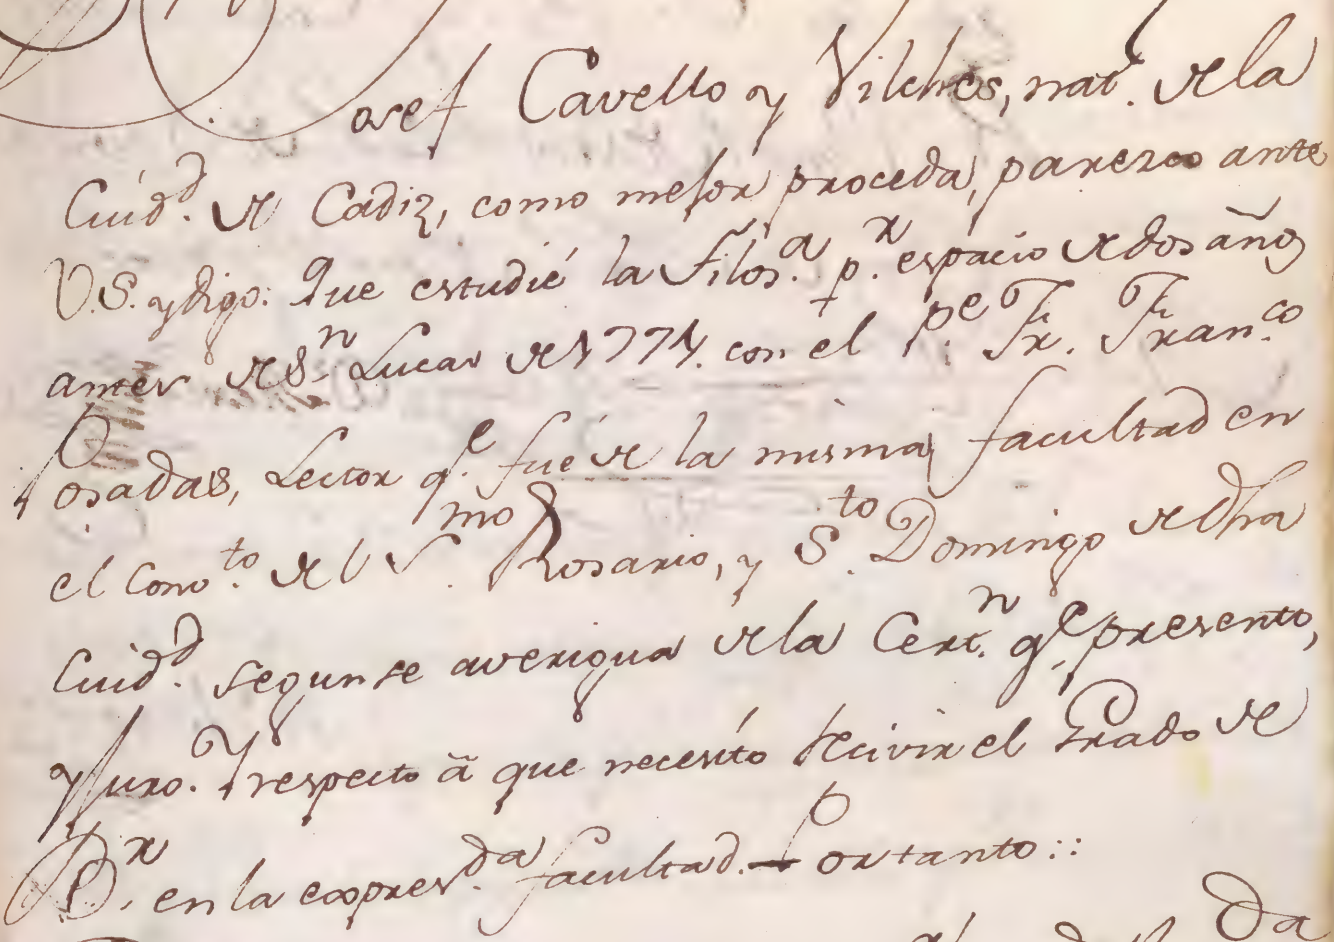 Josef Cavello y Vilches, nat.l de la
Ciud.d de Cadiz, como mejor proceda, parezco ante
V.S. y digo: Que estudié la Filos.a p.r espacio de dos años
antes de S.n Lucas de 1774. con el P.e Fr. Fran.co
Posadas, Lector q.e fué de la misma facultad en
el Conv.to del S.mo Rosario, y S.to Domingo de dha
Ciud.d segun se averigua de la Cert.n q.e presento,
y Juro. Y respecto â que necesito recivir el Grado de
B.r en la expres.da facultad. Por tanto::